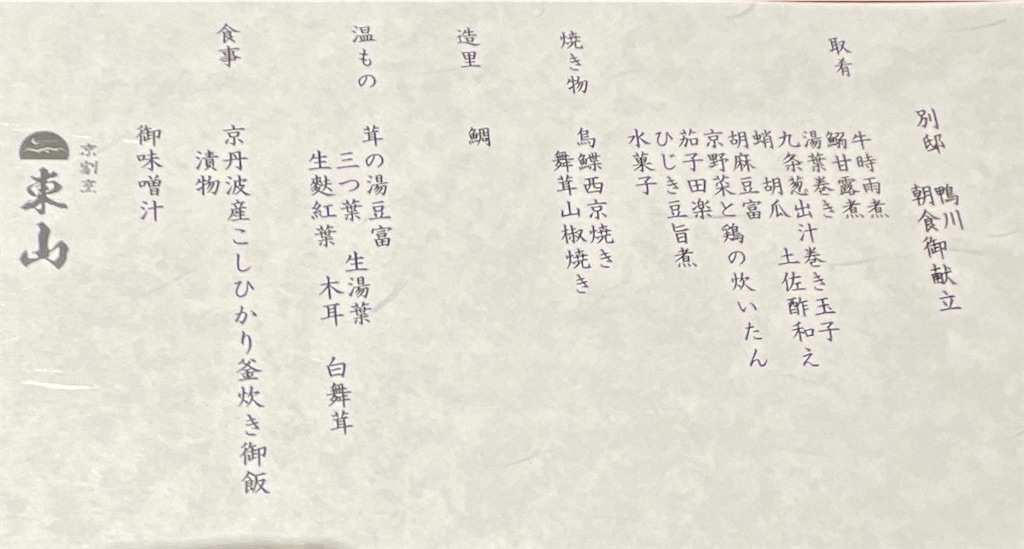 別邸 鴨川
朝食御献立
取肴
牛時雨煮
鰯甘露煮
湯葉巻き
九条葱出汁巻き玉子
蛸 胡瓜 土佐酢和え
胡麻豆富
京野菜と鶏の炊いたん
茄子田楽
ひじき豆旨煮
水菓子
焼き物
烏鰈西京焼き
舞茸山椒焼き
造里
鯛
温もの
茸の湯豆富
三つ葉 生湯葉
生麩紅葉 木耳 白舞茸
食事
京丹波産こしひかり釜炊き御飯
漬物
御味噌汁
京割烹
東山